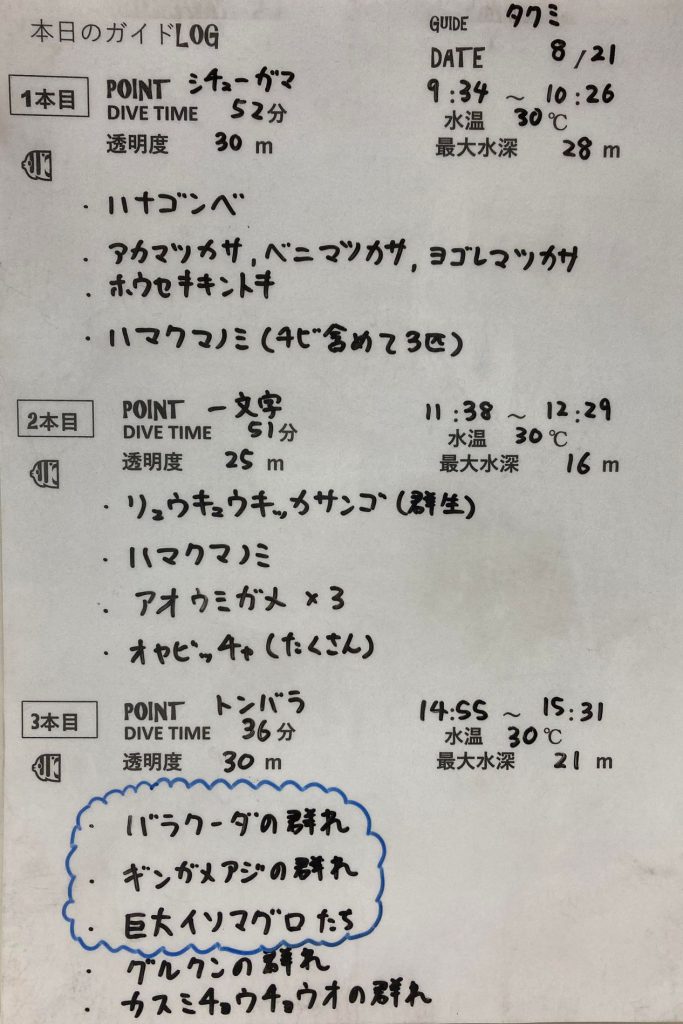 本日のガイドLOG
GUIDE タクミ
DATE 8/21
1本目 POINT シチューガマ 9:34 ～ 10:26
DIVE TIME 52分 水温 30℃
透明度 30 m 最大水深 28 m
・ハナゴンベ
・アカマツカサ, ベニマツカサ, ヨゴレマツカサ
・ホウセキキントキ
・ハマクマノミ(チビ含めて3匹)
2本目 POINT 一文字 11:38 ～ 12:29
DIVE TIME 51分 水温 30℃
透明度 25 m 最大水深 16 m
・リュウキュウキッカサンゴ(群生)
・ハマクマノミ
・アオウミガメ ×3
・オヤビッチャ(たくさん)
3本目 POINT トンバラ 14:55 ～ 15:31
DIVE TIME 36分 水温 30℃
透明度 30 m 最大水深 21 m
・バラクーダの群れ
・ギンガメアジの群れ
・巨大イソマグロたち
・グルクンの群れ
・カスミチョウチョウオの群れ